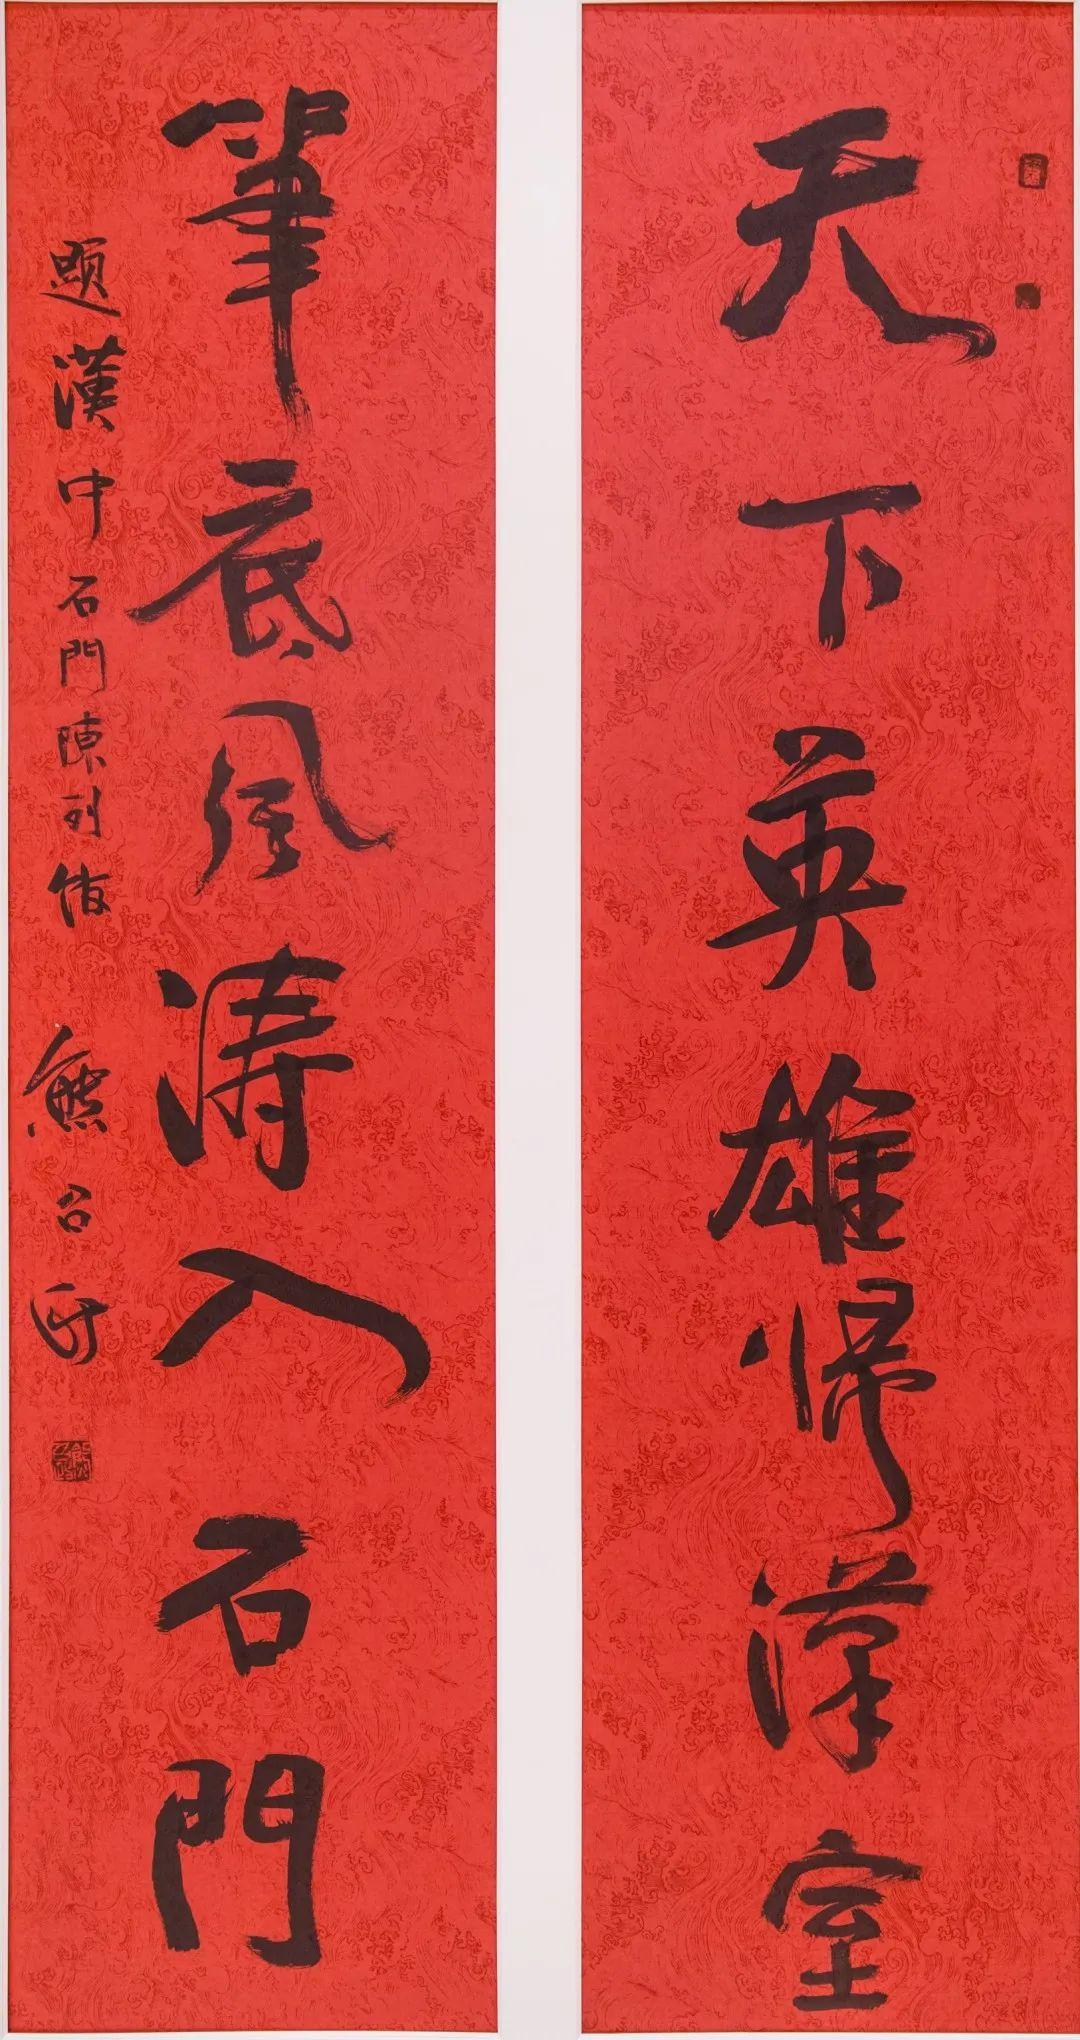 天下英雄歸漢室
筆底風濤入石門
題漢中石門陳列館
熊召政